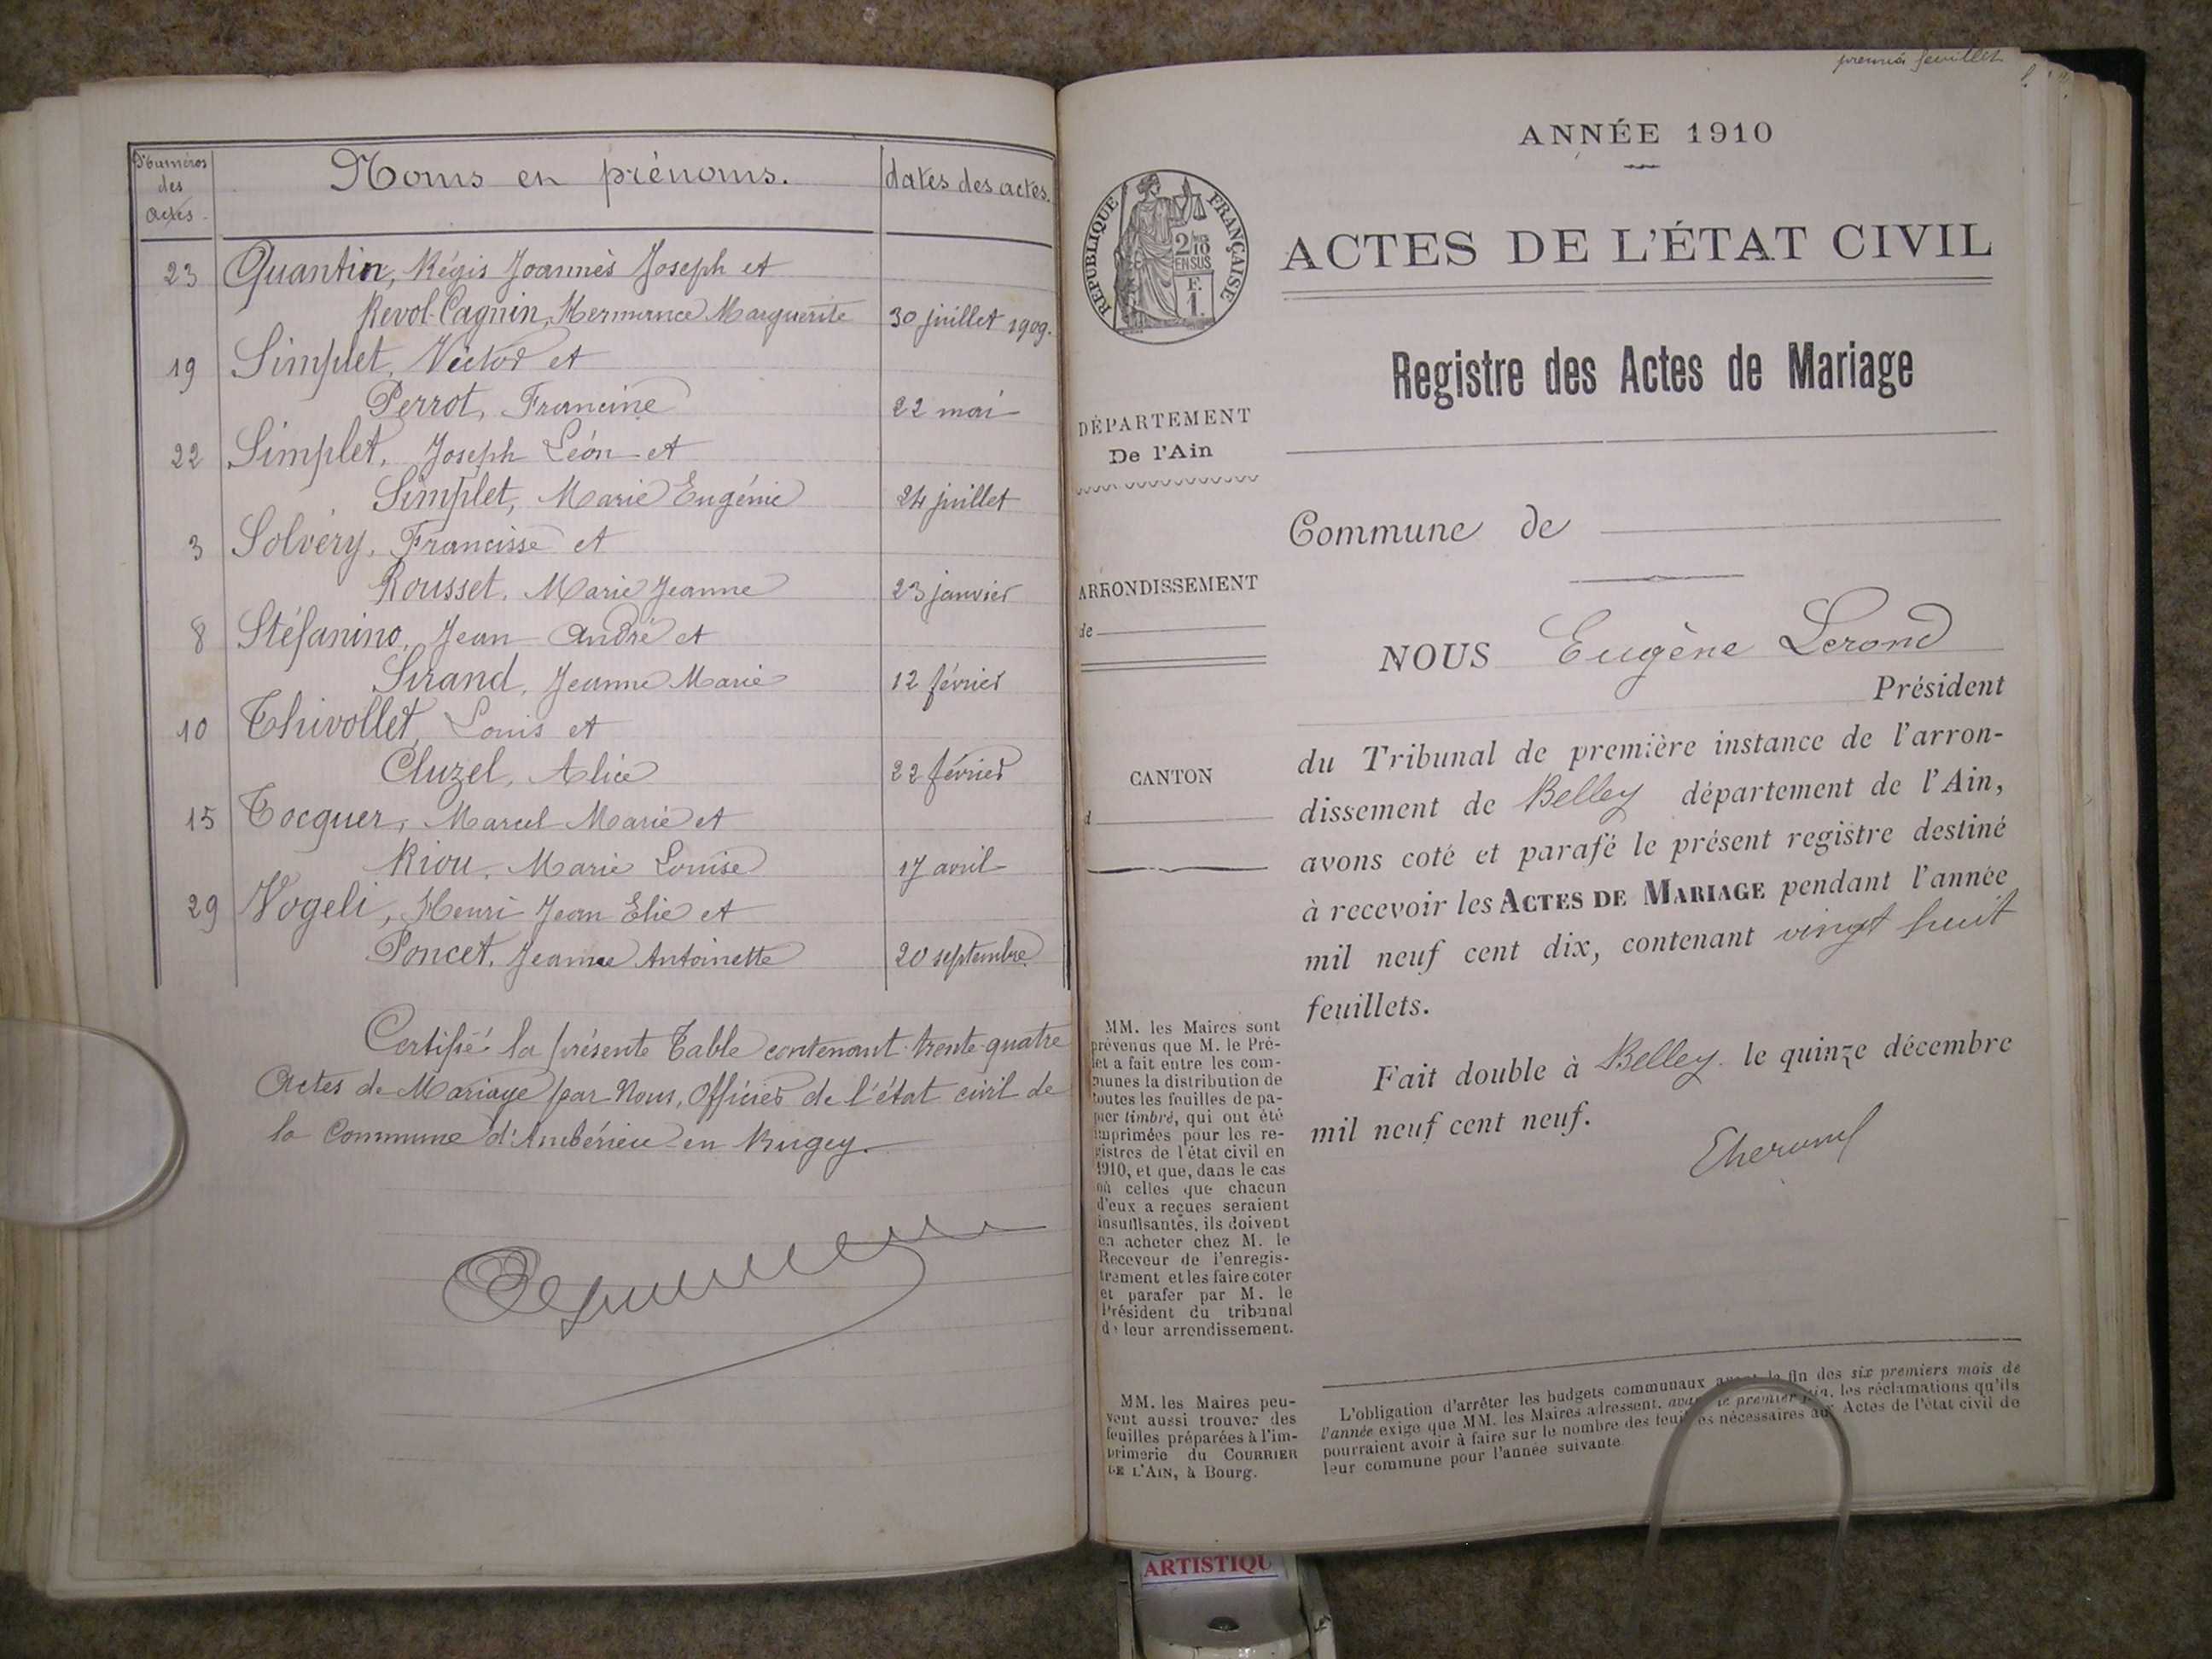 Numéros
des
actes.
Noms en prénoms.
dates des actes.
23 Quantin, Régis Joannès Joseph et
Revol-Cagnin, Hermance Marguerite 30 juillet 1909.
19 Simplet, Victor et
Perrot, Francine 22 mai
22 Simplet, Joseph Léon et
Simplet, Marie Eugénie 24 juillet
3 Solvéry, Francisse et
Rousset, Marie Jeanne 23 janvier
8 Stéfanino, Jean André et
Sirand, Jeanne Marie 12 février
10 Thivollet, Louis et
Cluzel, Alice 22 février
15 Tocquer, Marcel Marie et
Riou, Marie Louise 17 avril
29 Vogeli, Henri Jean Elie et
Poncet, Jeanne Antoinette 20 septembre
Certifié la présente Table contenant trente-quatre
Actes de Mariage par Nous, Officier de l'état civil de
la Commune d'Ambérieu en Bugey.
premier feuillet
ANNÉE 1910
ACTES DE L'ÉTAT CIVIL
RÉPUBLIQUE FRANÇAISE
2/10
EN SUS
F.
1.
Registre des Actes de Mariage
DÉPARTEMENT
De l'Ain
Commune de
ARRONDISSEMENT
de
CANTON
d
NOUS Eugène Lerond
Président
du Tribunal de première instance de l'arron-
dissement de Belley département de l'Ain,
avons coté et parafé le présent registre destiné
à recevoir les ACTES DE MARIAGE pendant l'année
mil neuf cent dix, contenant vingt huit
feuillets.
Fait double à Belley le quinze décembre
mil neuf cent neuf.
MM. les Maires sont
prévenus que M. le Pré-
fet a fait entre les com-
munes la distribution de
toutes les feuilles de pa-
pier timbré, qui ont été
imprimées pour les re-
gistres de l'état civil en
1910, et que, dans le cas
où celles que chacun
d'eux a reçues seraient
insuffisantes, ils doivent
en acheter chez M. le
Receveur de l'enregis-
trement et les faire coter
et parafer par M. le
Président du tribunal
de leur arrondissement.
MM. les Maires peu-
vent aussi trouver des
feuilles préparées à l'im-
primerie du COURRIER
DE L'AIN, à Bourg.
L'obligation d'arrêter les budgets communaux avant la fin des six premiers mois de
l'année exige que MM. les Maires adressent, avant le premier juin, les réclamations qu'ils
pourraient avoir à faire sur le nombre des feuilles nécessaires aux Actes de l'état civil de
leur commune pour l'année suivante.
ARTISTIQU